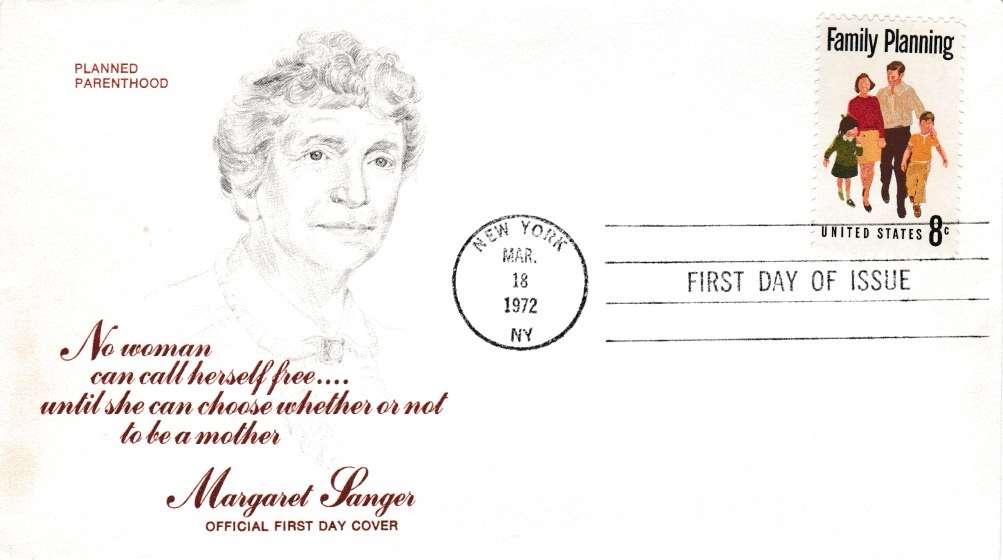 PLANNED
PARENTHOOD
Family Planning
UNITED STATES 8c
NEW YORK
MAR.
18
1972
NY
FIRST DAY OF ISSUE
No woman
can call herself free....
until she can choose whether or not
to be a mother
Margaret Sanger
OFFICIAL FIRST DAY COVER